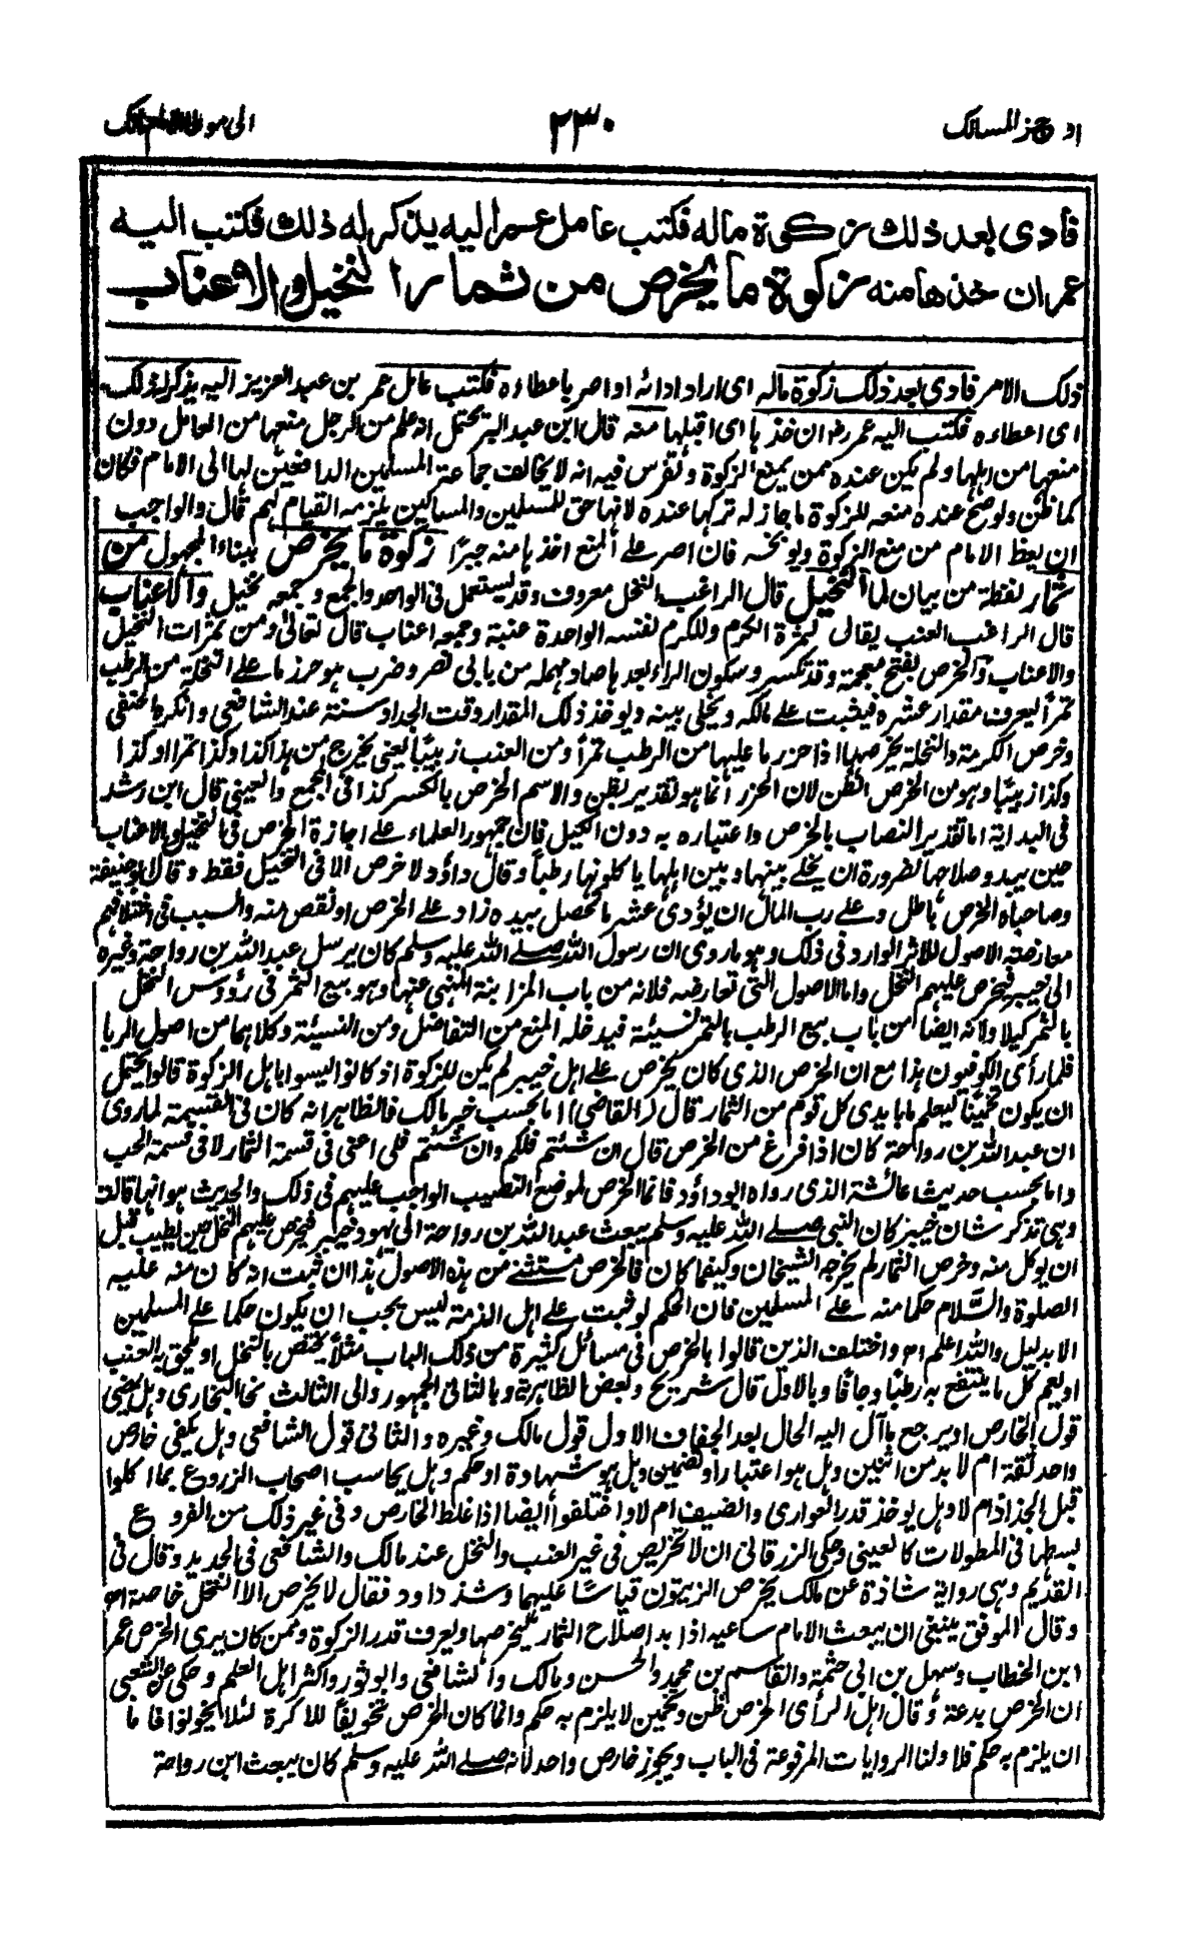 اوجز المسالك
٢٣٠
الى موطا الامام مالك
فادى بعد ذلك زكوة ماله فكتب عامل عمر اليه يذكر له ذلك فكتب اليه
عمر ان خذها منه زكوة ما يخرص من ثمار النخيل والاعناب
ذلك الامر فادى بعد ذلك زكوة ماله اى اراد ادائه او اصر باعطاءه فكتب عامل عمر بن عبد العزيز اليه يذكر له ذلك
اى اعطاءه فكتب اليه عمر رضـ ان خذها اى اقبلها منه قال ابن عبد البر يحتمل انه علم من الرجل منعها من العامل دون
منعها من اهلها ولم يكن عنده ممن يمنع الزكوة وتفرس فيه انه لا يخالف جماعة المسلمين الدافعين لها الى الامام فكان
كما ظن ولو صح عنده منعه للزكوة ما جاز له تركها عنده لانها حق للمسلمين والمساكين يلزمه القيام لهم قال والواجب
ان يعظ الامام من منع الزكوة ويوبخه فان اصر على المنع اخذها منه جبرًا زكوة ما يخرص ببناء المجهول من
ثمار لفظة من بيان لما النخيل قال الراغب النخل معروف وقد يستعمل فى الواحد والجمع وجمعه نخيل والاعناب
قال الراغب العنب يقال لثمرة الكرم وللكرم لنفسه الواحدة عنبة وجمعه اعناب قال تعالى ومن ثمرات النخيل
والاعناب والخرص بفتح معجمة وقد تكسر وسكون الراء بعدها صاد مهملة من بابى نصر وضرب هو حرز ما على النخلة من الرطب
تمرًا ليعرف مقدار عشره فيثبت على مالكه ويخلى بينه ويوخذ ذلك المقدار وقت الجداد وسنة عند الشافعى وانكره الحنفى
وخرص الكرمة والنخلة يخرصها اذا حزر ما عليها من الرطب تمرًا ومن العنب زبيبًا يعنى يخرج من هذا كذا وكذا تمرا او كذا
وكذا زبيبًا وهو من الخرص الظن لان الحزر انما هو تقدير بظن والاسم الخرص بالكسر كذا فى المجمع والعينى قال ابن رشد
فى البداية اما تقدير النصاب بالخرص واعتباره به دون الكيل فان جمهور العلماء على اجازة الخرص فى النخيل والاعناب
حين يبدو صلاحها لضرورة ان يخلى بينها وبين اهلها ياكلونها رطبًا وقال داؤد لا خرص الا فى النخيل فقط وقال ابو حنيفة
وصاحباه الخرص باطل وعلى رب المال ان يؤدى عشر ما تحصل بيده زاد على الخرص او نقص منه والسبب فى اختلافهم
معارضة الاصول للاثر الوارد فى ذلك وهو ما روى ان رسول الله صلى الله عليه وسلم كان يرسل عبد الله بن رواحة وغيره
الى خيبر فيخرص عليهم النخل واما الاصول التى تعارضه فلانه من باب المزابنة المنهى عنها وهو بيع الثمر فى رؤس النخل
بالثمر كيلا ولانه ايضا من باب بيع الرطب بالتمر نسيئة فيدخله المنع من التفاضل ومن النسيئة وكلاهما من اصول الربا
فلما رأى الكوفيون هذا مع ان الخرص الذى كان يخرص على اهل خيبر لم يكن للزكوة اذ كانوا ليسوا باهل الزكوة قالوا يحتمل
ان يكون تخمينًا ليعلم ما بايدى كل قوم من الثمار قال (القاضى) اما بحسب خبر مالك فالظاهر انه كان فى القسمة لما روى
ان عبد الله بن رواحة كان اذا فرغ من الخرص قال ان شئتم فلكم وان شئتم فلى اعنى فى قسمة الثمار لا فى قسمة الحب
واما بحسب حديث عائشة الذى رواه ابو داؤد فانما الخرص لموضع النصيب الواجب عليهم فى ذلك والحديث هو انها قالت
وهى تذكر شان خيبر كان النبى صلى الله عليه وسلم يبعث عبد الله بن رواحة الى يهود خيبر فيخرص عليهم النخل حين يطيب قبل
ان يوكل منه وخرص الثمار لم يخرجه الشيخان وكيفما كان فالخرص مستثنى من هذه الاصول هذا ان ثبت انه كان منه عليه
الصلوة والسلام حكما منه على المسلمين فان الحكم لو ثبت على اهل الذمة ليس يجب ان يكون حكما على المسلمين
الا بدليل والله اعلم اھ واختلف الذين قالوا بالخرص فى مسائل كثيرة من ذلك الباب مثلًا يختص بالنخل او يلحق به العنب
او يعم كل ما ينتفع به رطبًا وجافًا وبالاول قال شريح وبعض الظاهرية وبالثانى الجمهور والى الثالث نحا البخارى وهل يمضى
قول الخارص او يرجع بما آل اليه الحال بعد الجفاف الاول قول مالك وغيره والثانى قول الشافعى وهل يكفى خارص
واحد ثقة ام لا بد من اثنين وهل هو اعتبار او تضمين وهل هو شهادة او حكم وهل يحاسب اصحاب الزروع بما اكلوا
قبل الجذاذ ام لا وهل يوخذ قدر العوارى والضيف ام لا واختلفوا ايضا اذا غلط الخارص وفى غير ذلك من الفروع
بسطها فى المطولات كالعينى وحكى الزرقانى ان لا تخريص فى غير العنب والنخل عند مالك والشافعى فى الجديد وقال فى
القديم وهى رواية شاذة عن مالك يخرص الزيتون قياسًا عليهما وشذ داود فقال لا يخرص الا النخل خاصة اھ
وقال الموفق ينبغى ان يبعث الامام ساعيه اذا بدا صلاح الثمار ليخرصها ويعرف قدر الزكوة وممن كان يرى الخرص عمر
ابن الخطاب وسهل بن ابى حثمة والقاسم بن محمد والحسن ومالك والشافعى وابو ثور واكثر اهل العلم وحكى عن الشعبى
ان الخرص بدعة وقال اهل الرأى الخرص ظن وتخمين لا يلزم به حكم وانما كان الخرص تخويفًا للاكرة لئلا يخونوا فاما
ان يلزم به حكم فلا ولنا الروايات المرفوعة فى الباب ويجوز خارص واحد لانه صلى الله عليه وسلم كان يبعث ابن رواحة